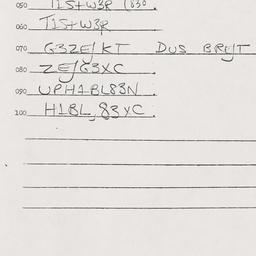 050 T1S+W3R 1830.
060 T1S+W3R
070 G3ZE/KT DUS BREJT
080 ZE/G3XC.
090 UPH1BL83N.
100 H1BL,83YC.